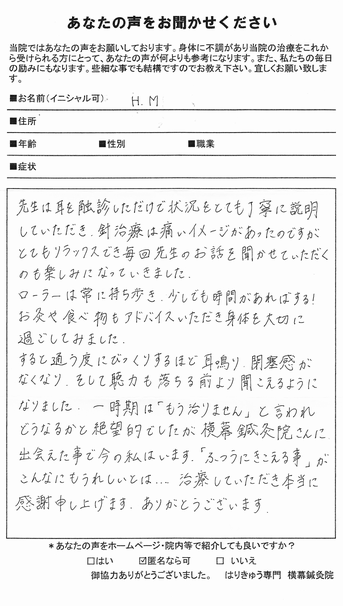 あなたの声をお聞かせください
当院ではあなたの声をお願いしております。身体に不調があり当院の治療をこれか
ら受けられる方にとって、あなたの声が何よりも参考になります。また、私たちの毎日
の励みにもなります。些細な事でも結構ですのでお教え下さい。宜しくお願い致しま
す。
■お名前(イニシャル可) H.M
■住所
■年齢 ■性別 ■職業
■症状
先生は耳を触診しただけで状況をとても丁寧に説明
していただき、針治療は痛いイメージがあったのですが
とてもリラックスでき毎回先生のお話を聞かせていただく
のも楽しみになっていきました。
ローラーは常に持ち歩き、少しでも時間があればする!
お灸や食べ物もアドバイスいただき身体を大切に
過ごしてみました。
すると通う度にびっくりするほど耳鳴り、閉塞感が
なくなり、そして聴力も落ちる前より聞こえるように
なりました。一時期は「もう治りません」と言われ
どうなるかと絶望的でしたが横幕鍼灸院さんに
出会えた事で今の私はいます。「ふつうにきこえる事」が
こんなにもうれしいとは…治療していただき本当に
感謝申し上げます。ありがとうございます。
*あなたの声をホームページ・院内等で紹介しても良いですか?
□はい ☑匿名なら可 □いいえ
御協力ありがとうございました。 はりきゅう専門 横幕鍼灸院